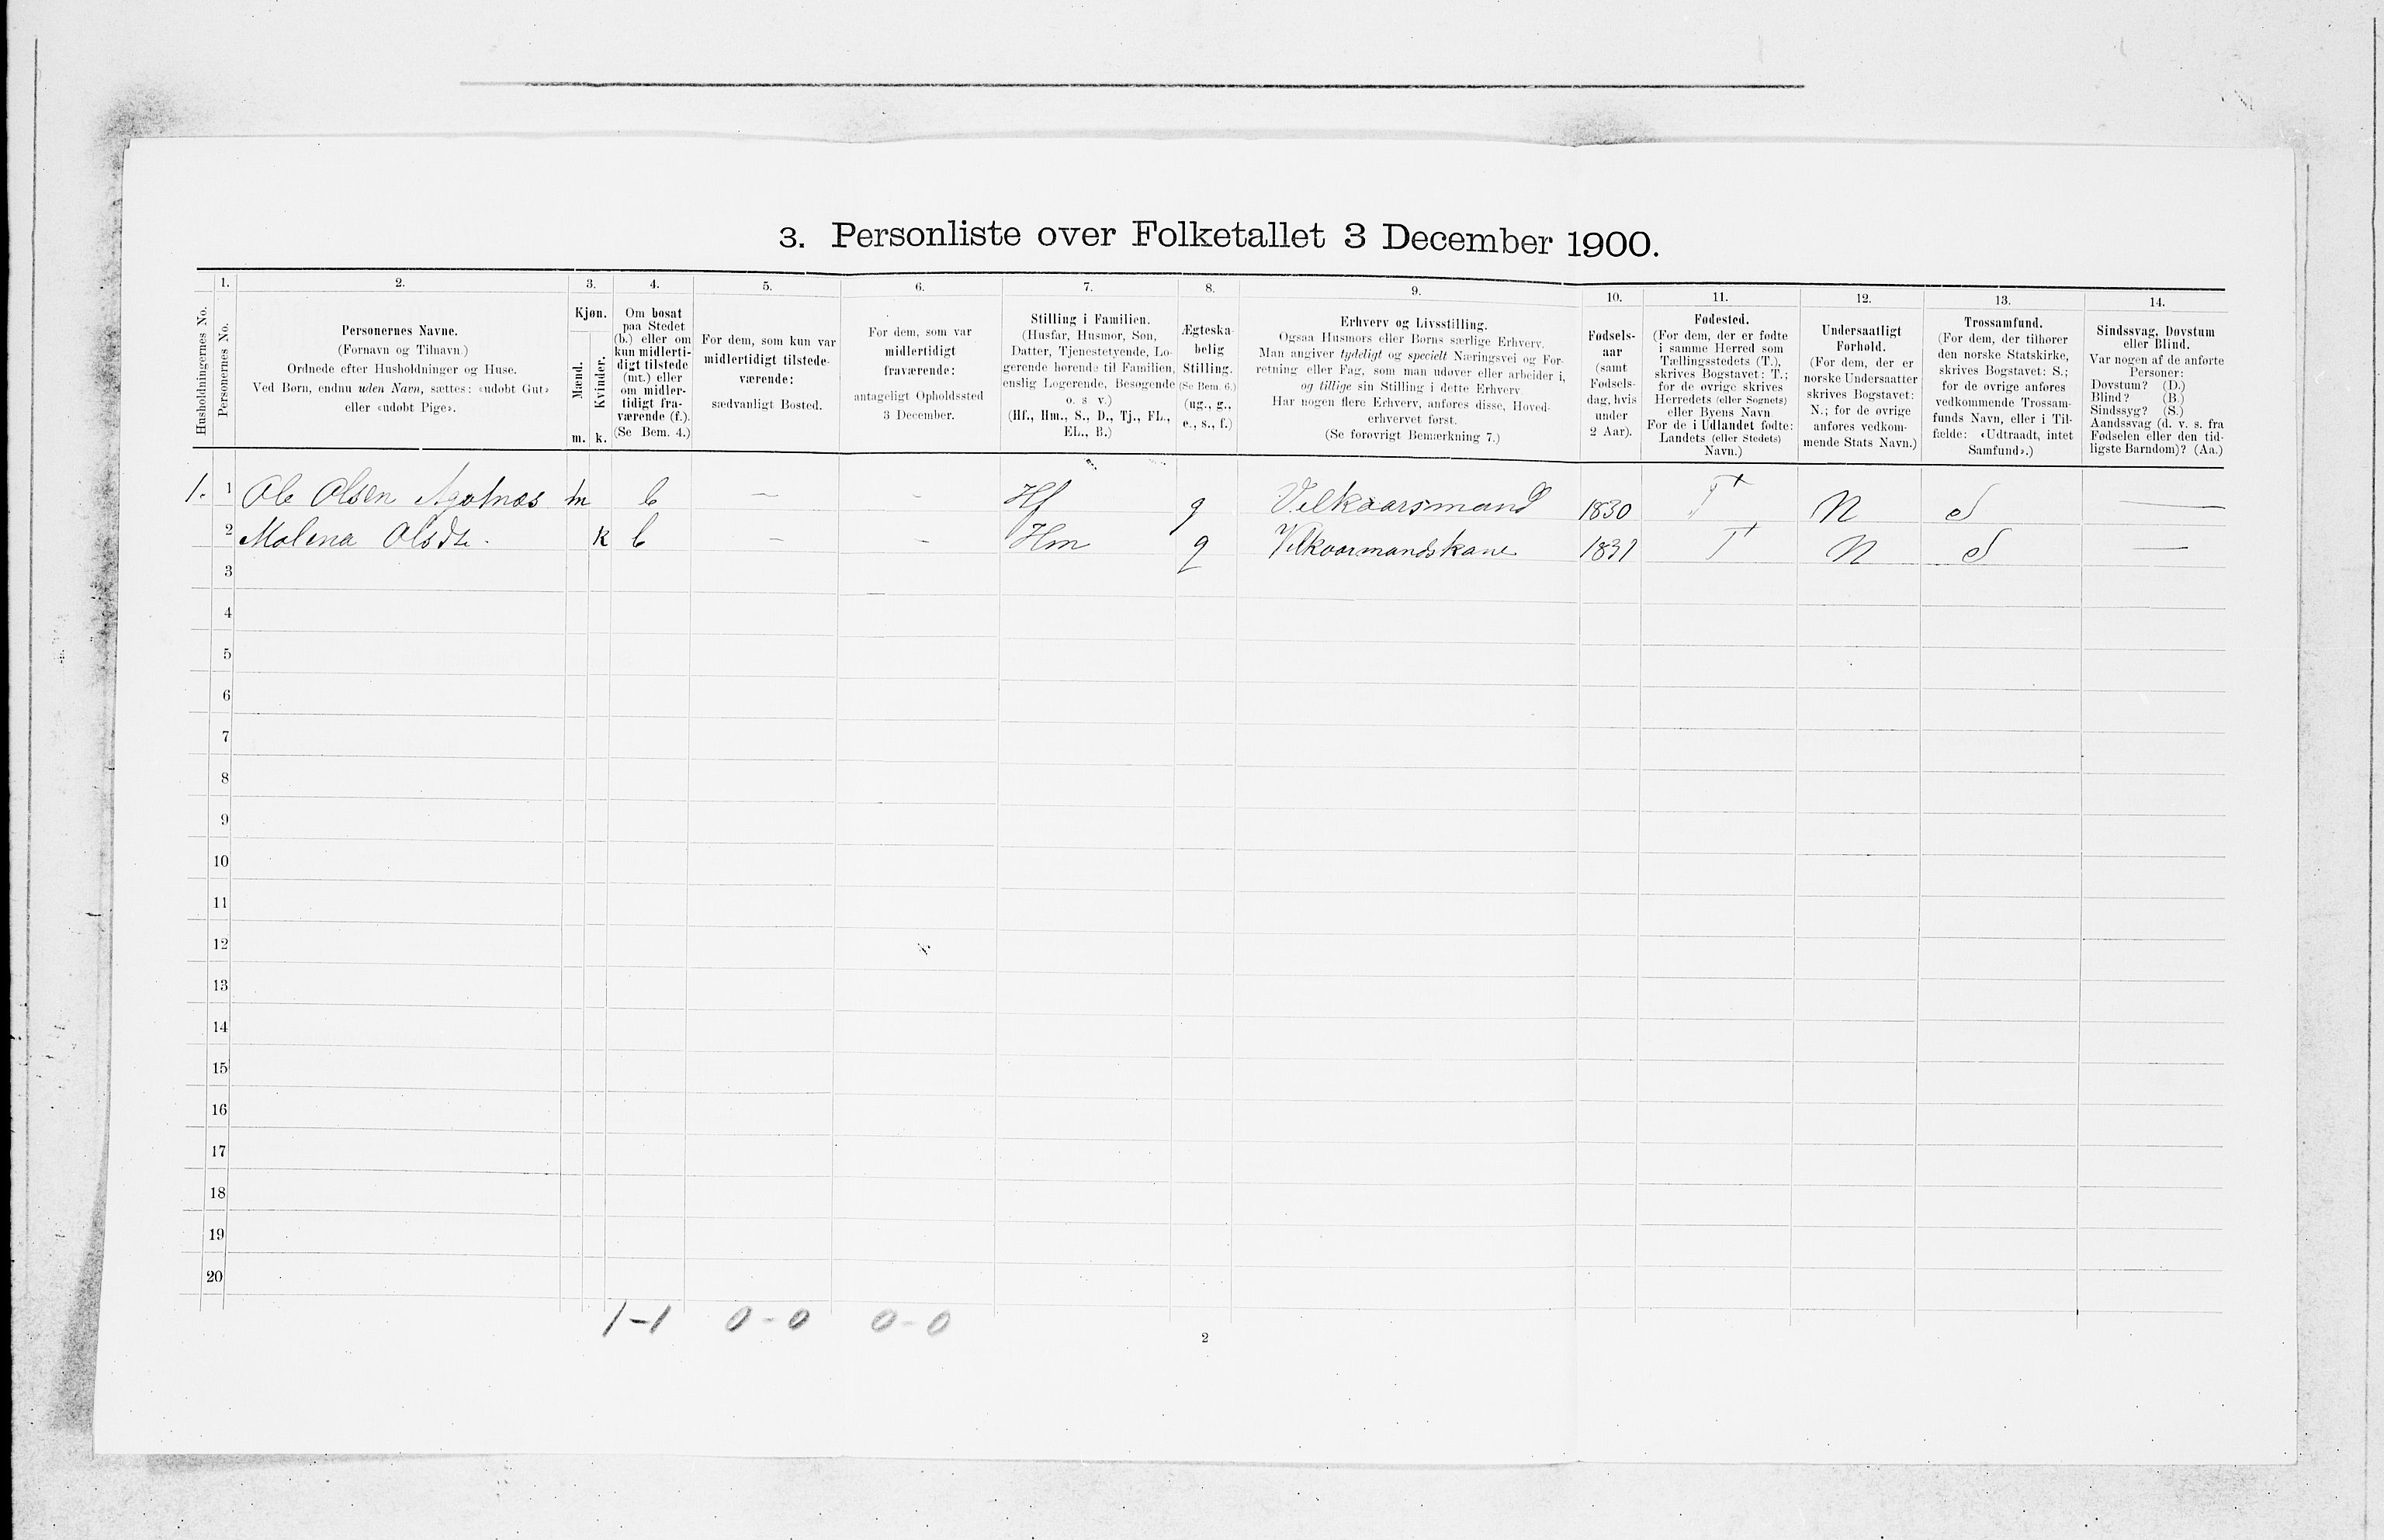 3. Personliste over Folketallet 3 December 1900.
Husholdningernes No.
1.
Personernes No.
2.
Personernes Navne.
(Fornavn og Tilnavn.)
Ordnede efter Husholdninger og Huse.
Ved Børn, endnu uden Navn, sættes: «udøbt Gut»
eller «udøbt Pige».
3.
Kjøn.
Mænd.
Kvinder.
m. k.
4.
Om bosat
paa Stedet
(b.) eller om
kun midlerti-
digt tilstede
(mt.) eller
om midler-
tidigt fra-
værende (f.).
(Se Bem. 4.)
5.
For dem, som kun var
midlertidigt tilstede-
værende:
sædvanligt Bosted.
6.
For dem, som var
midlertidigt
fraværende:
antageligt Opholdssted
3 December.
7.
Stilling i Familien.
(Husfar, Husmor, Søn,
Datter, Tjenestetyende, Lo-
gerende hørende til Familien,
enslig Logerende, Besøgende
o. s v.)
(Hf., Hm., S., D., Tj., FL.,
EL., B.)
8.
Ægteska-
belig
Stilling.
(Se Bem. 6.)
(ug., g.,
e., s., f.)
9.
Erhverv og Livsstilling.
Ogsaa Husmors eller Børns særlige Erhverv.
Man angiver tydeligt og specielt Næringsvei og For-
retning eller Fag, som man udøver eller arbeider i,
og tillige sin Stilling i dette Erhverv
Har nogen flere Erhverv, anføres disse, Hoved-
erhvervet først.
(Se forøvrigt Bemærkning 7.)
10.
Fødsels-
aar
(samt
Fødsels-
dag, hvis
under
2 Aar).
11.
Fødested.
(For dem, der er fødte
i samme Herred som
Tællingsstedets (T.),
skrives Bogstavet: T.;
for de øvrige skrives
Herredets (eller Sognets)
eller Byens Navn
For de i Udlandet fødte:
Landets (eller Stedets)
Navn.)
12.
Undersaatligt
Forhold.
(For dem, der er
norske Undersaatter
skrives Bogstavet:
N.; for de øvrige
anføres vedkom-
mende Stats Navn.)
13.
Trossamfund.
(For dem, der tilhører
den norske Statskirke,
skrives Bogstavet: S.;
for de øvrige anføres
vedkommende Trossam-
funds Navn, eller i Til-
fælde: «Udtraadt, intet
Samfund».)
14.
Sindssvag, Døvstum
eller Blind.
Var nogen af de anførte
Personer:
Døvstum? (D.)
Blind? (B.)
Sindssyg? (S.)
Aandssvag (d. v. s. fra
Fødselen eller den tid-
ligste Barndom)? (Aa.)
1. 1 Ole Olsen Agotnæs m b — — Hf g Velkaarsmand 1830 T N S —
2 Malena Olsdt. k b — — Hm g Vilkaarmandskane 1831 T N S —
3
4
5
6
7
8
9
10
11
12
13
14
15
16
17
18
19
20
1-1 0-0 0-0
2